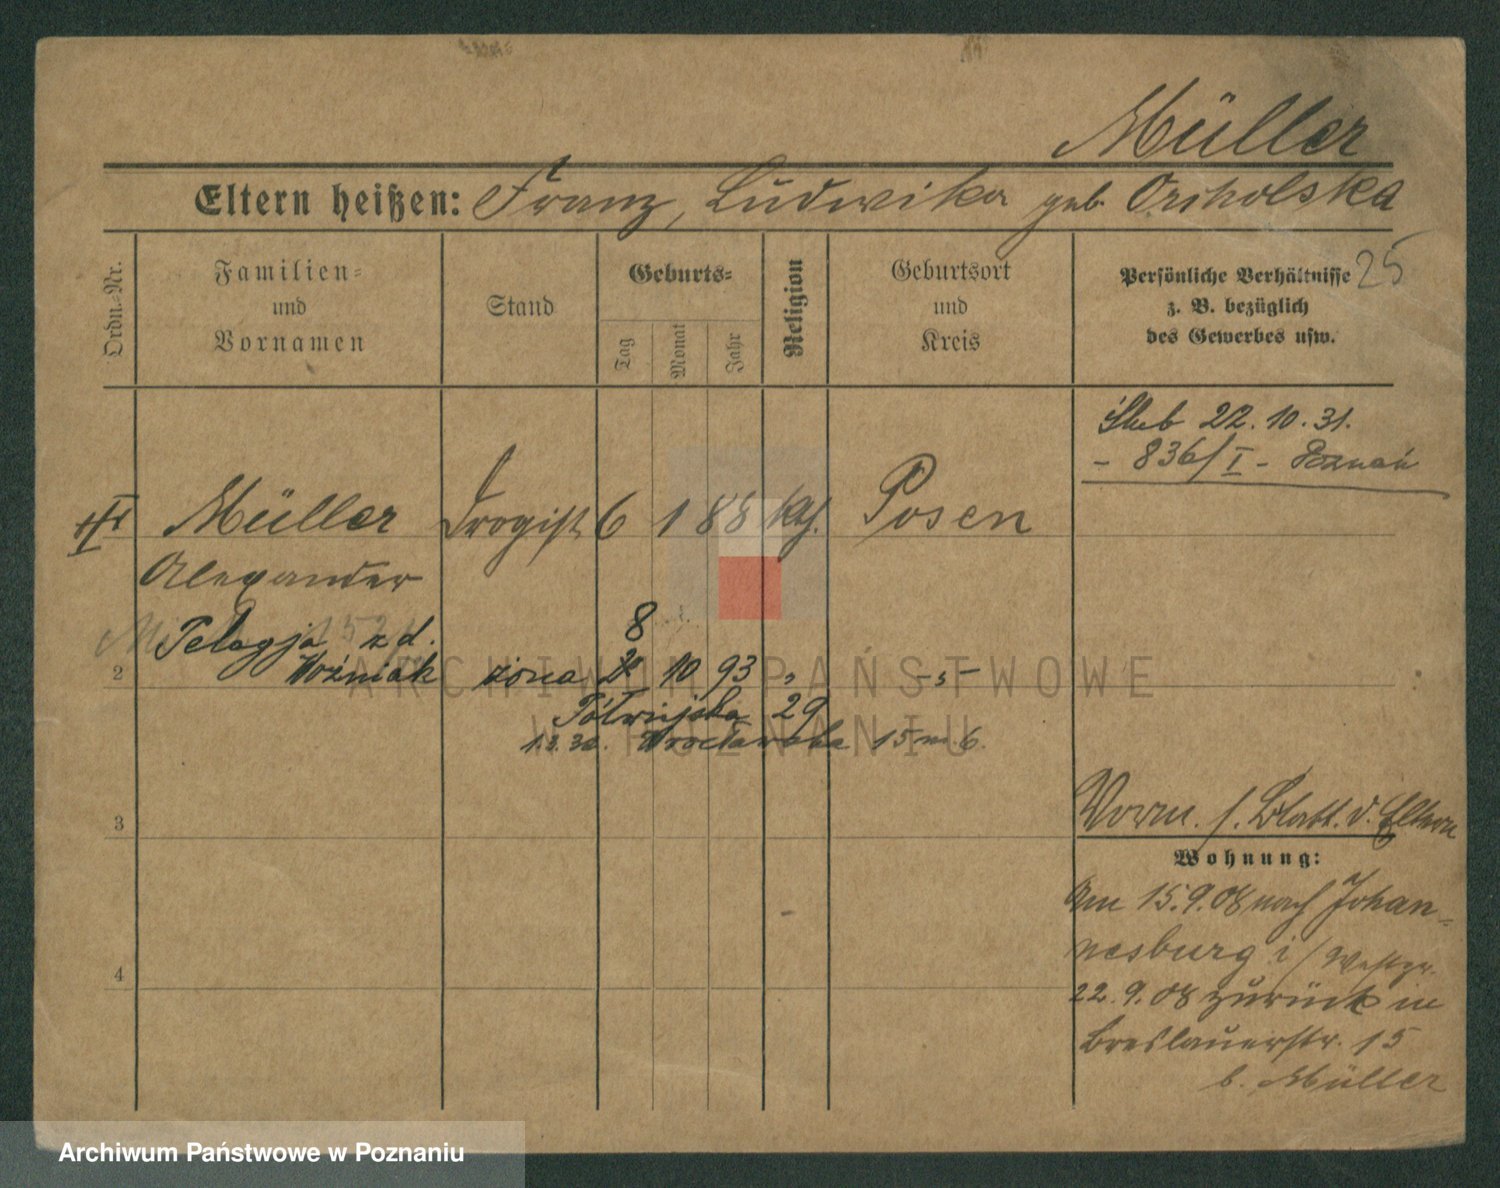 Müller
Eltern heißen: Franz, Ludwika geb. Orcholska
Ordn.-Nr.
Familien- und Vornamen
Stand
Geburts-
Tag
Monat
Jahr
Religion
Geburtsort und Kreis
Persönliche Verhältnisse z. B. bezüglich des Gewerbes usw.
25
Ślub 22.10.31.
- 836/I - Poznań
Müller Drogist 6 1 88 kth. Posen
Alexander
Pelagja z d.
8
2 Woźniak żona 10 93 " -"-
Półwiejska 29
1.3.32. Wrocławska 15 m. 6.
3
Vorm. s. Blatt. d. Eltern
Wohnung:
Am 15.9.08 nach Johan-
nesburg i/Westpr.
4
22.9.08 zurück in
Breslauerstr. 15
b. Müller
ARCHIWUM PAŃSTWOWE
W POZNANIU
Archiwum Państwowe w Poznaniu